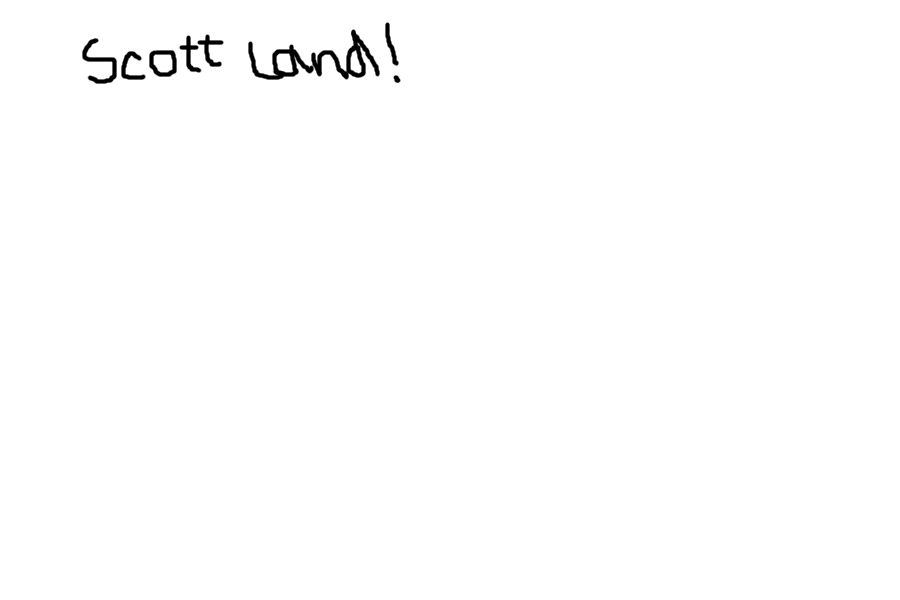 Scott Land!